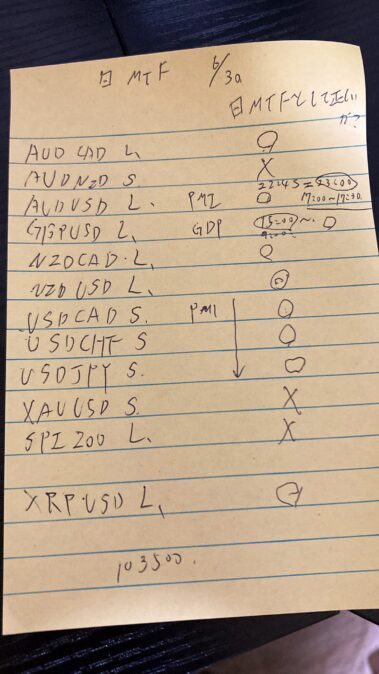 日 MTF 6/30
日MTFとして正しいか?
AUDCAD L. ○
AUDNZD S. ×
22:45 = 23:00
AUDUSD L. PMI ○ 17:00~17:30
GBPUSD L. GDP 15:00~. ○
NZDCAD. L. ○
NZDUSD L. ◎
USDCAD S. PMI ○
USDCHF S ○
USDJPY S. ○
XAUUSD S. ×
SPI200 L. ×
XRPUSD L. ○
103500.